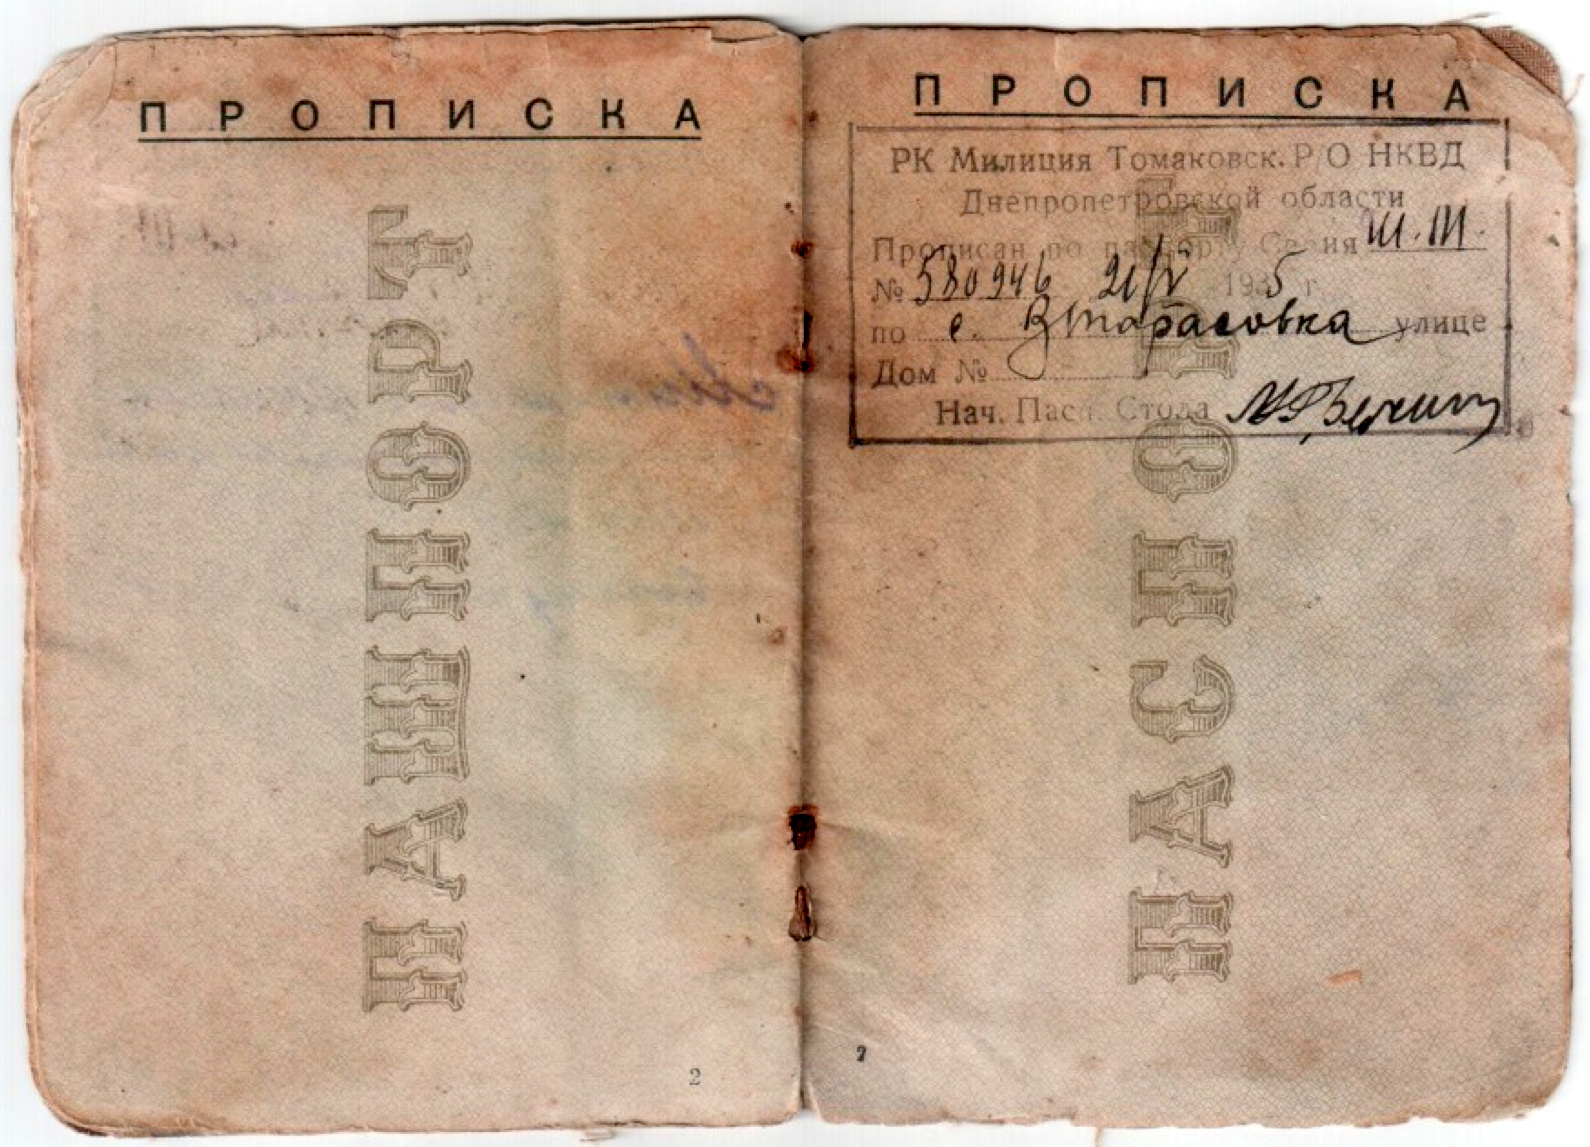 ПРОПИСКА
ПАШПОРТ
2
ПРОПИСКА
РК Милиция Томаковск. Р/О НКВД
Днепропетровской области
Прописан по паспорту Серия Ш.М.
№ 580946 21/V 1935 г.
по с. Втарасовка улице
Дом №
Нач. Пасп. Стола
ПАСПОРТ